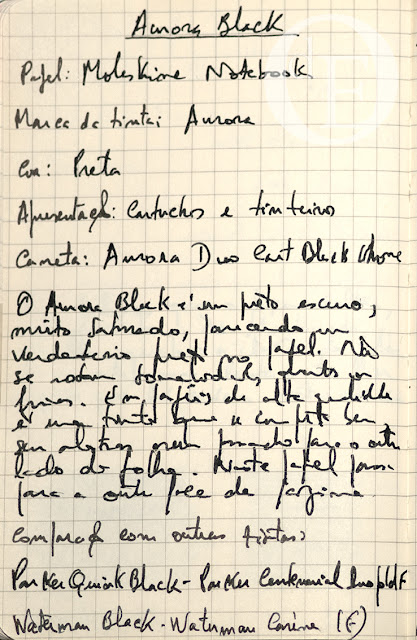 Aurora Black
Papel: Moleskine Notebook
Marca da tinta: Aurora
Cor: Preta
Apresentação: Cartuchos e tinteiros
Caneta: Aurora Duo Cart Black Chrome
O Aurora Black é um preto escuro,
muito saturado, parecendo um
verdadeiro preto no papel. Não
se notam tonalidades, quentes ou
frias. Em papéis de alta qualidade
é uma tinta que se comporta bem
sem nem passando para o outro
lado da folha. Neste papel passa
para a outra face da página.
Comparação com outras tintas:
Parker Quink Black - Parker Centennial Duofold F
Waterman Black - Waterman Carène (F)